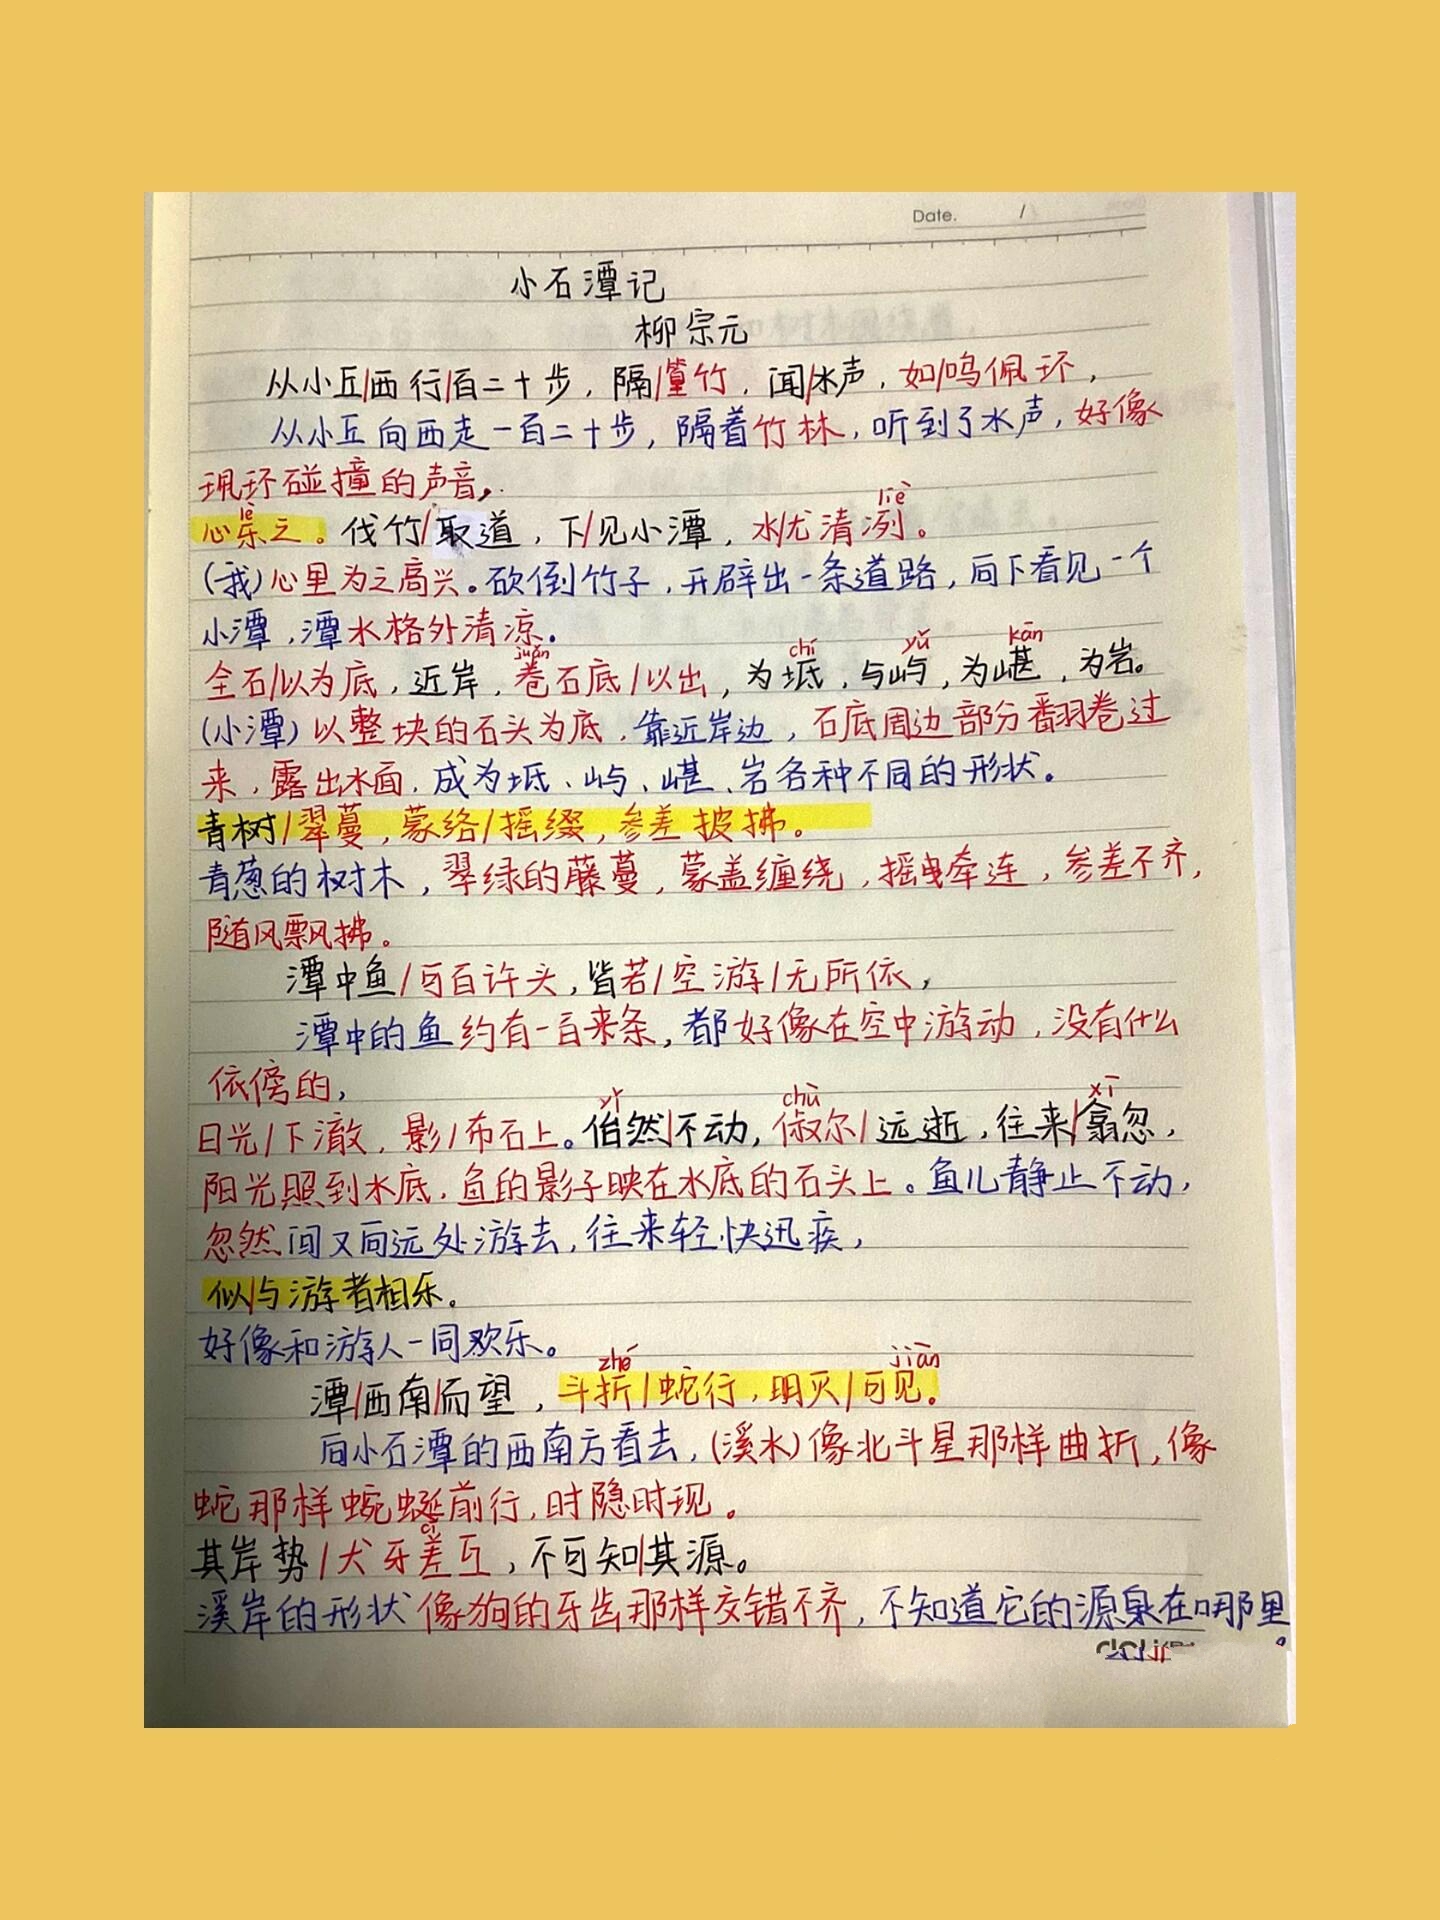 Date. /
小石潭记
柳宗元
从小丘/西行/百二十步，隔/篁竹，闻/水声，如/鸣佩环，
从小丘向西走一百二十步，隔着竹林，听到了水声，好像
珮环碰撞的声音，
lè liè
心乐之。伐竹/取道，下/见小潭，水/尤清冽。
(我)心里为之高兴。砍倒竹子，开辟出一条道路，向下看见一个
小潭，潭水格外清凉。
juǎn chí yǔ kān
全石/以为底，近岸，卷石底/以出，为坻，与屿，为嵁，为岩。
(小潭)以整块的石头为底，靠近岸边，石底周边部分翻卷过
来，露出水面，成为坻、屿、嵁、岩各种不同的形状。
青树/翠蔓，蒙络/摇缀，参差披拂。
青葱的树木，翠绿的藤蔓，蒙盖缠绕，摇曳牵连，参差不齐，
随风飘拂。
潭中鱼/可百许头，皆若/空游/无所依，
潭中的鱼约有一百来条，都好像在空中游动，没有什么
依傍的，
yǐ chù xī
日光/下澈，影/布石上。佁然/不动，俶尔/远逝，往来/翕忽，
阳光照到水底，鱼的影子映在水底的石头上。鱼儿静止不动，
忽然间又向远处游去，往来轻快迅疾，
似/与游者相乐。
好像和游人一同欢乐。
zhé jiàn
潭/西南/而望，斗折/蛇行，明灭/可见。
向小石潭的西南方看去，(溪水)像北斗星那样曲折，像
蛇那样蜿蜒前行，时隐时现。
cī
其岸势/犬牙差互，不可知/其源。
溪岸的形状像狗的牙齿那样交错不齐，不知道它的源泉在哪里。